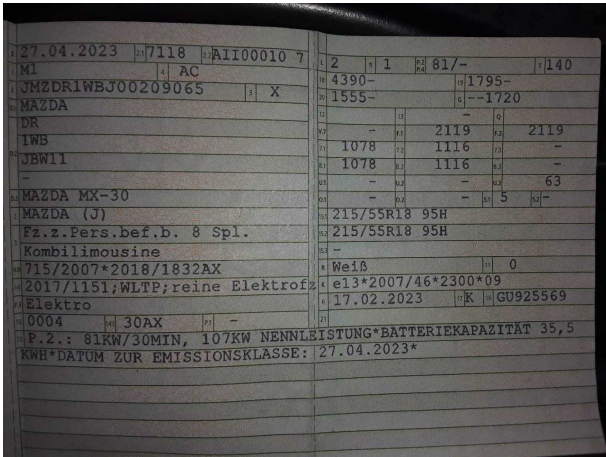 27.04.2023 7118 AII00010 7
M1 AC
JMZDR1WBJ00209065 X
MAZDA
DR
1WB
JBW11
-
MAZDA MX-30
MAZDA (J)
Fz.z.Pers.bef.b. 8 Spl.
Kombilimousine
715/2007*2018/1832AX
2017/1151;WLTP;reine Elektrofz
Elektro
0004 30AX -
2 1 81/- 140
4390- 1795-
1555- --1720
-
- 2119 2119
1078 1116 -
1078 1116 -
- - 63
- - 5 -
215/55R18 95H
215/55R18 95H
-
Weiß 0
e13*2007/46*2300*09
17.02.2023 K GU925569
P.2.: 81KW/30MIN, 107KW NENNLEISTUNG*BATTERIEKAPAZITÄT 35,5
KWH*DATUM ZUR EMISSIONSKLASSE: 27.04.2023*